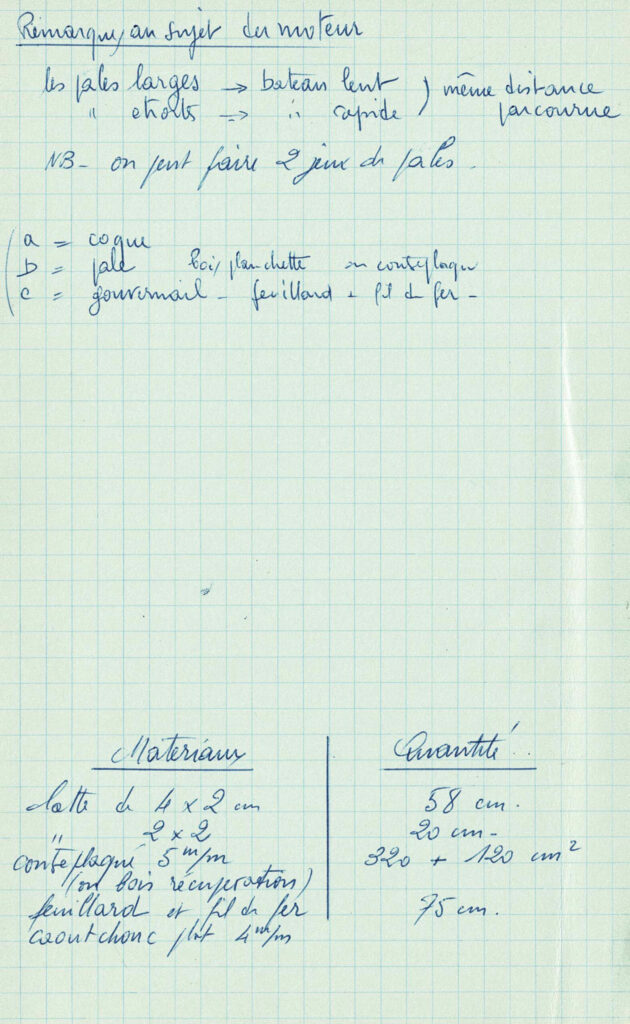 Remarques au sujet du moteur
les pales larges → bateau lent ) même distance
" etroites → " rapide parcourue
NB - on peut faire 2 jeux de pales.
a = coque
b = pale bois planchette ou contreplaqu
c = gouvernail - feuillard + fil de fer -
Materiaux Quantité
latte de 4 x 2 cm 58 cm.
" 2 x 2 20 cm -
contreplaqué 5 m/m 320 + 120 cm²
(ou bois récupération)
feuillard et fil de fer 75 cm.
caoutchouc plat 4 m/m